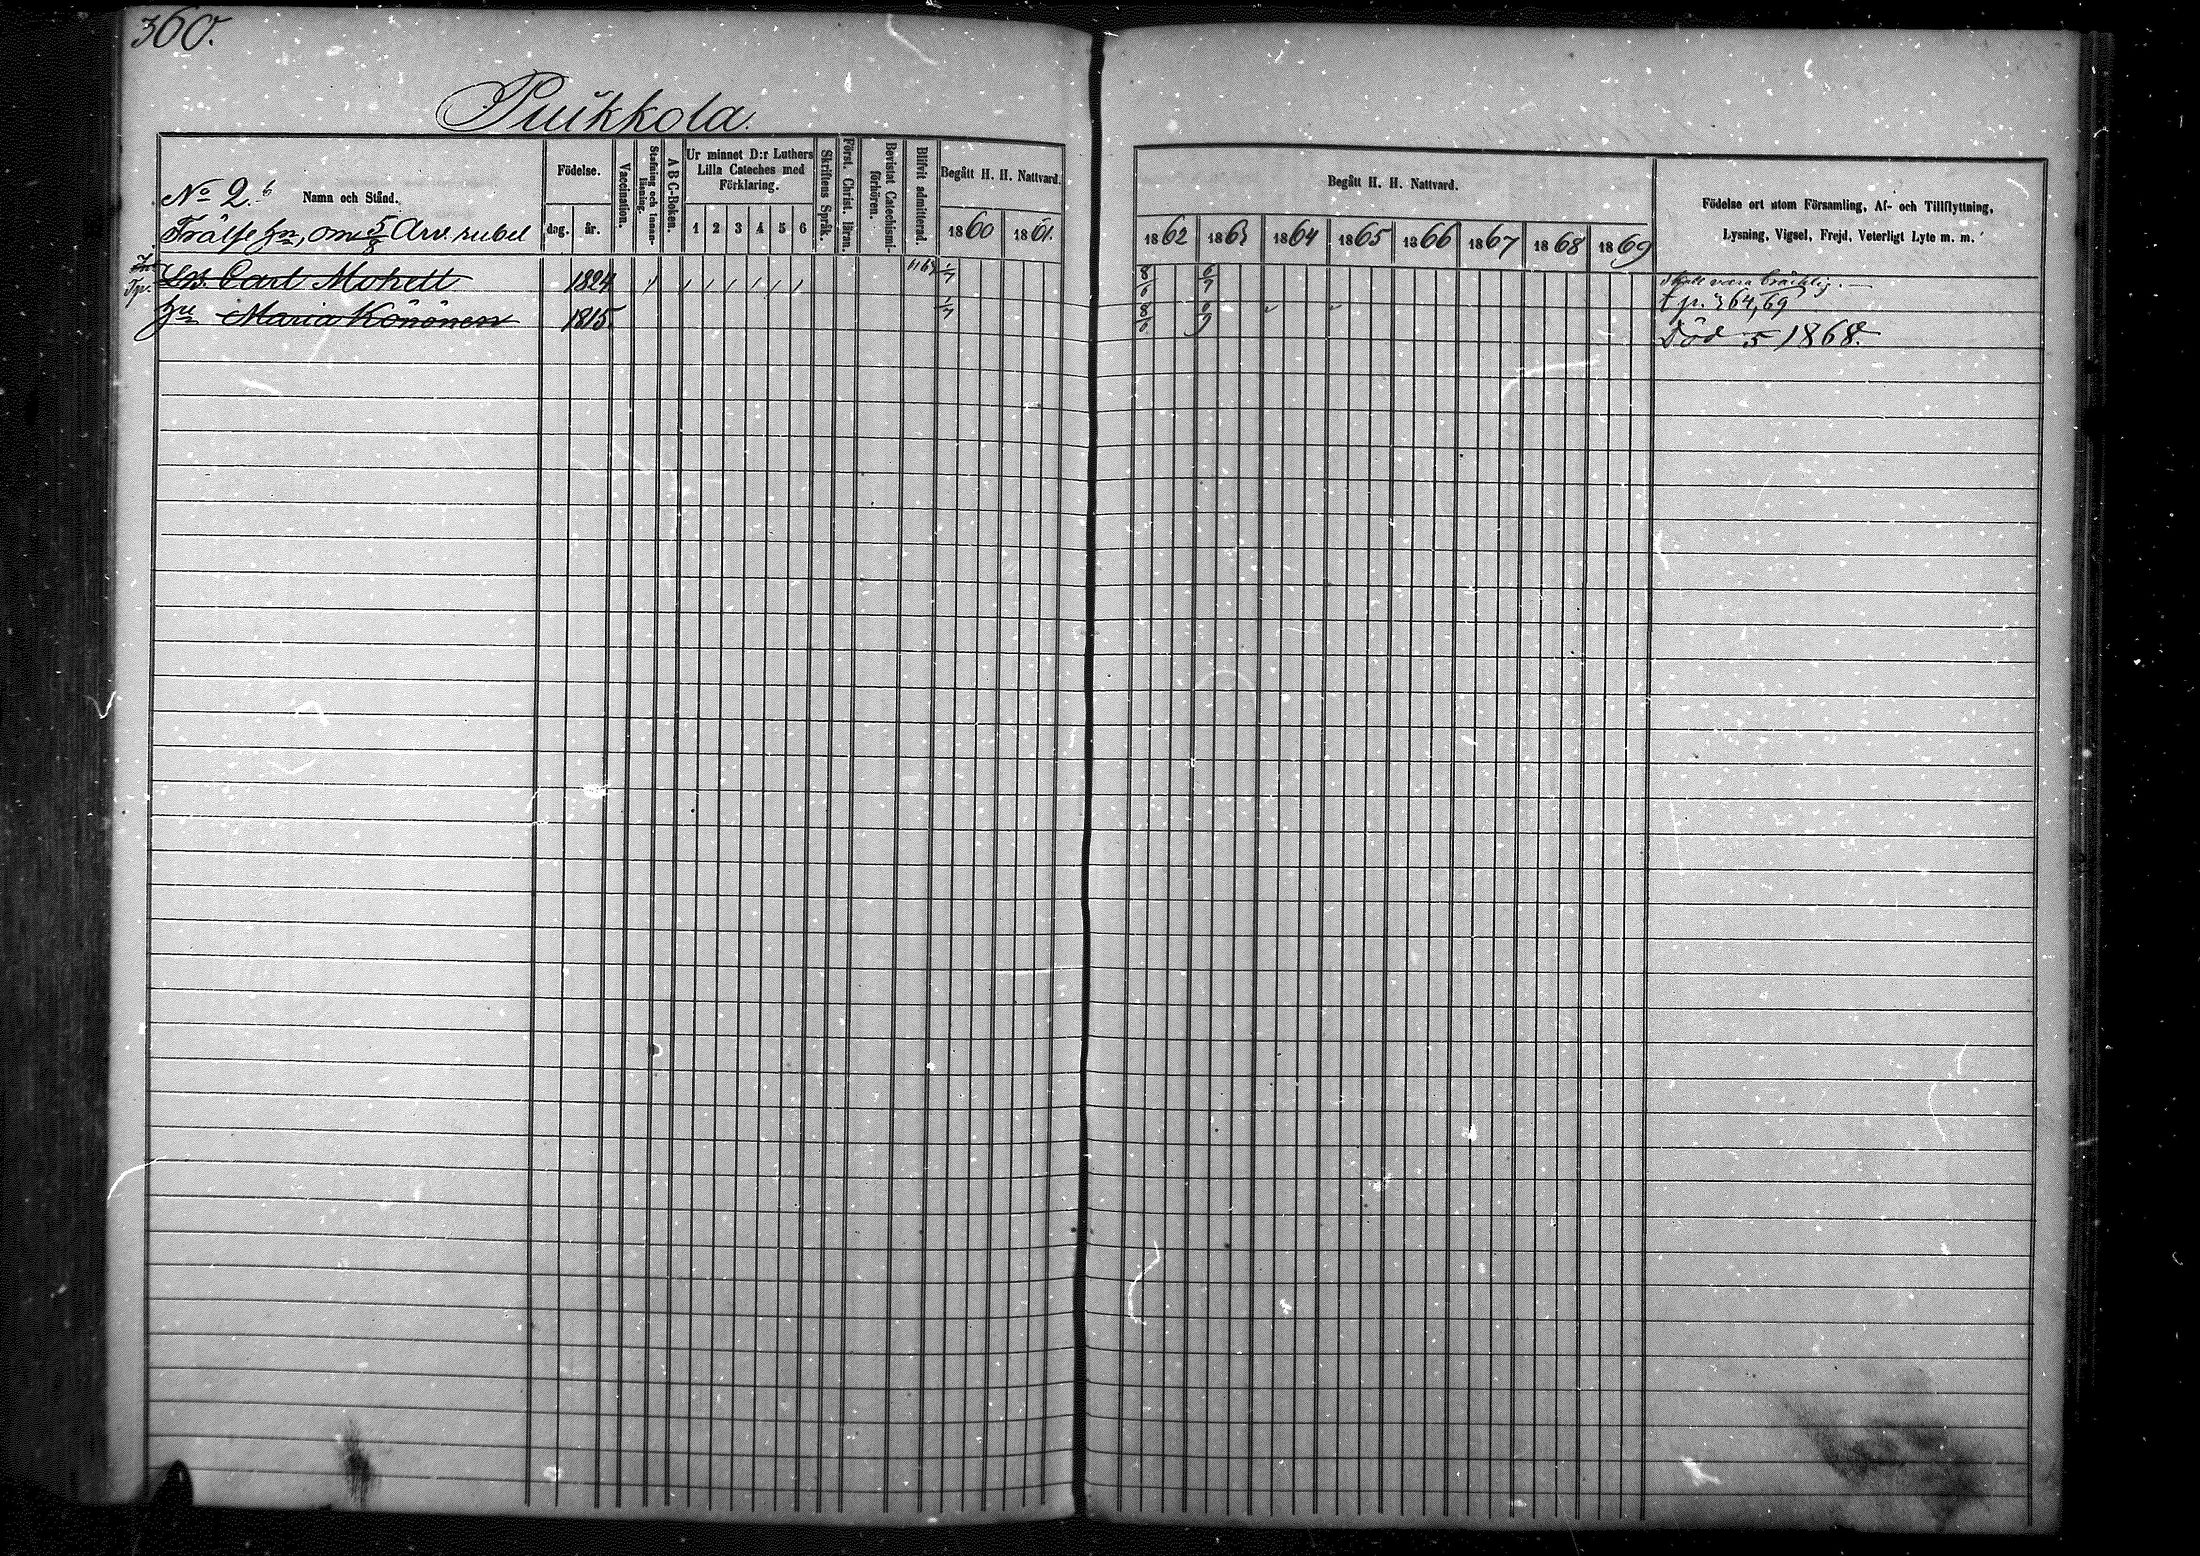 360.
Puikkola.
No 2.b Namn och Stånd.
Frälse hn, om 5/8 Arv. rubel
Födelse.
dag. år.
Vaccination.
Stafning och Innanläsning.
A B C-Boken.
Ur minnet D:r Luthers Lilla Cateches med Förklaring.
1 2 3 4 5 6
Skriftens Språk.
Först. Christ. läran.
Bevistat Catechismiförhören.
Blifvit admitterad.
Begått H. H. Nattvard.
1860 1861.
Begått H. H. Nattvard.
1862 1863 1864 1865 1866 1867 1868 1869
Födelse ort utom Församling, Af- och Tillflyttning,
Lysning, Vigsel, Frejd, Veterligt Lyte m. m.
Carl Mohell 1824 1/7 8/6 6/7 Skall vara bräcklig.
t. p. 364, 69
hu Maria Könönen 1815. 1/7 8/6 6/7 Död 1868.